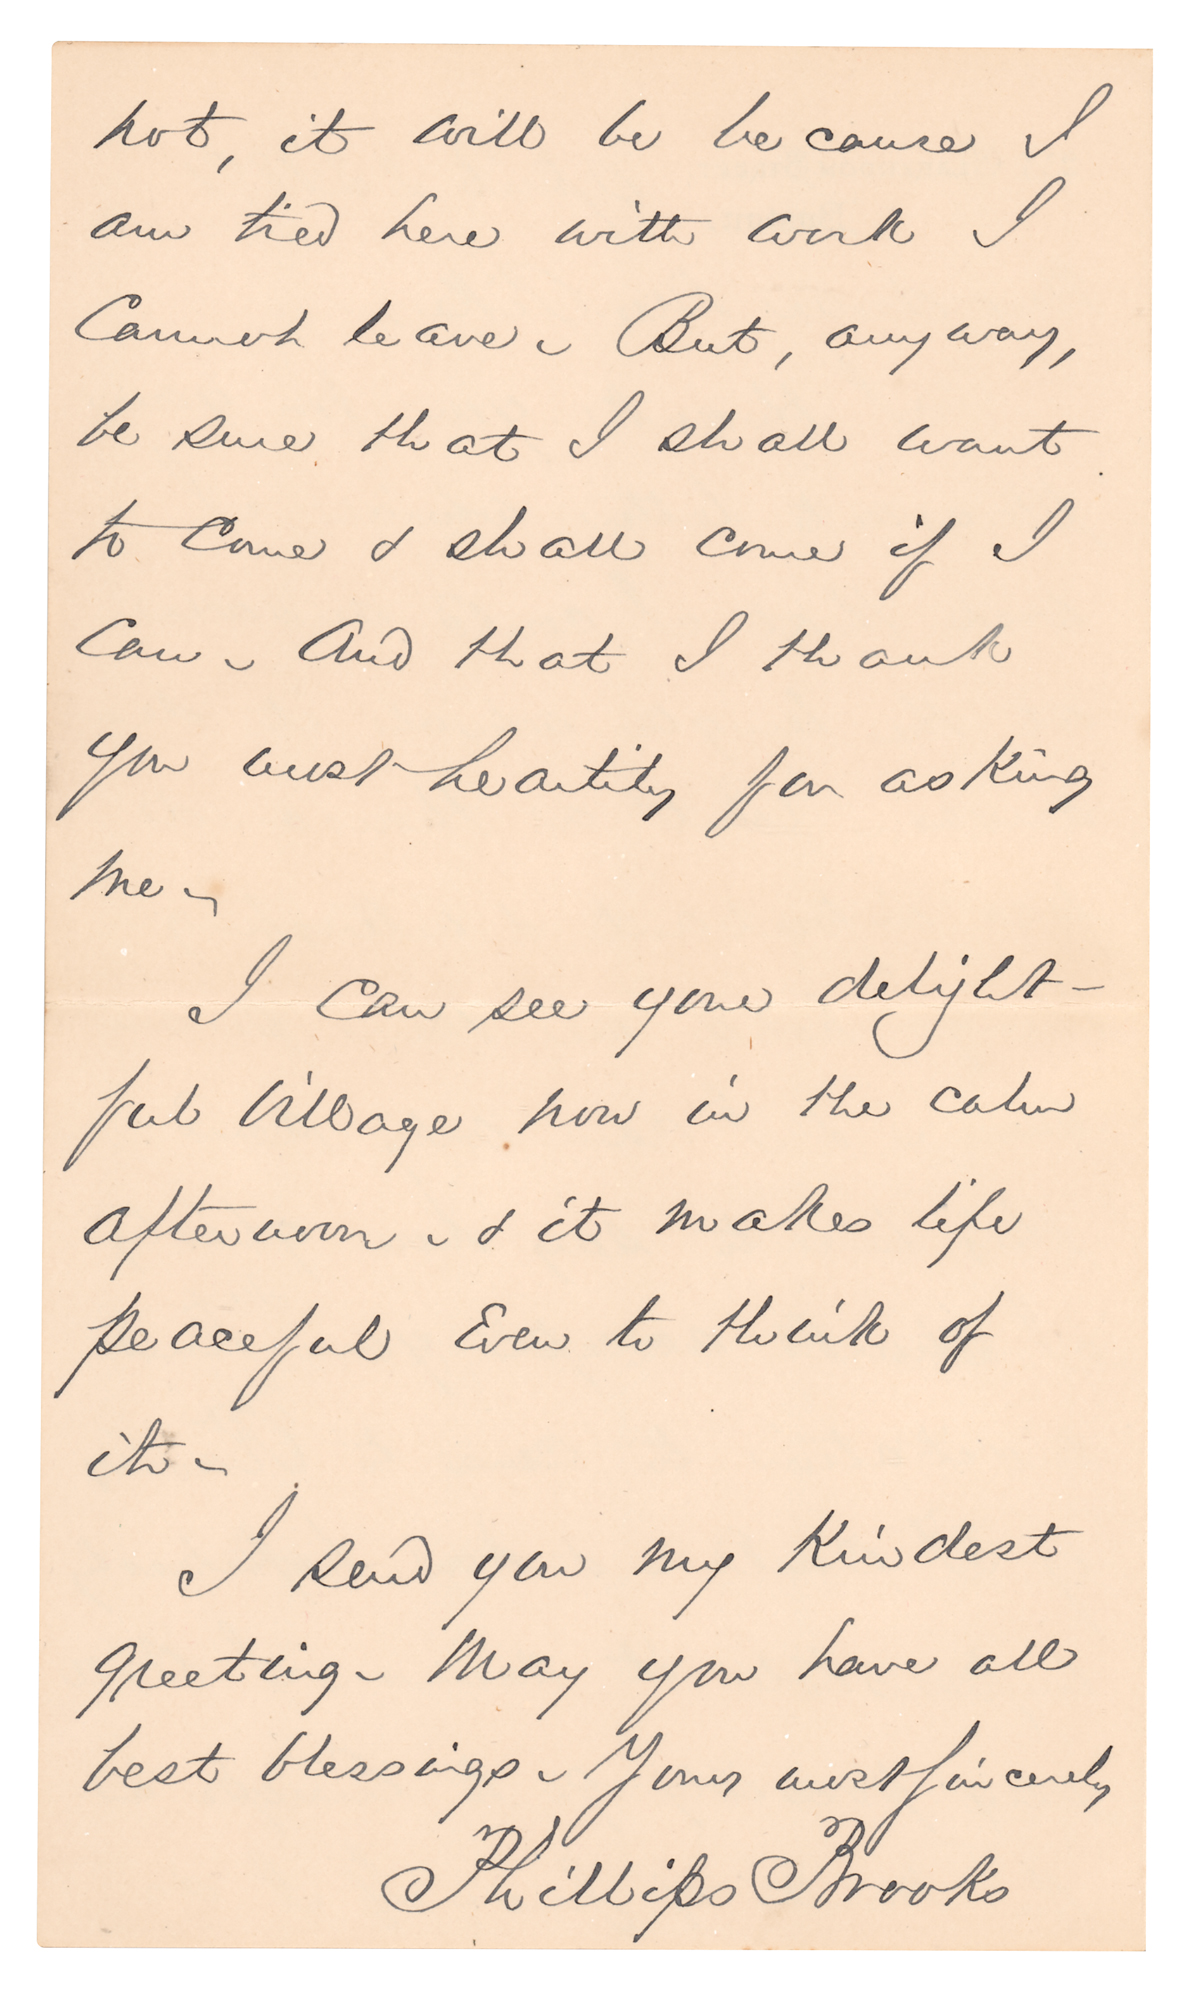 not, it will be because I
am tied here with work I
Cannot leave. But, anyway,
be sure that I shall want
to Come & shall come if I
Can. And that I thank
you most heartily for asking
me.
I can see your delight-
ful Village now in the calm
afternoon. & it makes life
peaceful Even to think of
it.
I send you my Kindest
greeting. May you have all
best blessings. Yours most sincerely
Phillips Brooks